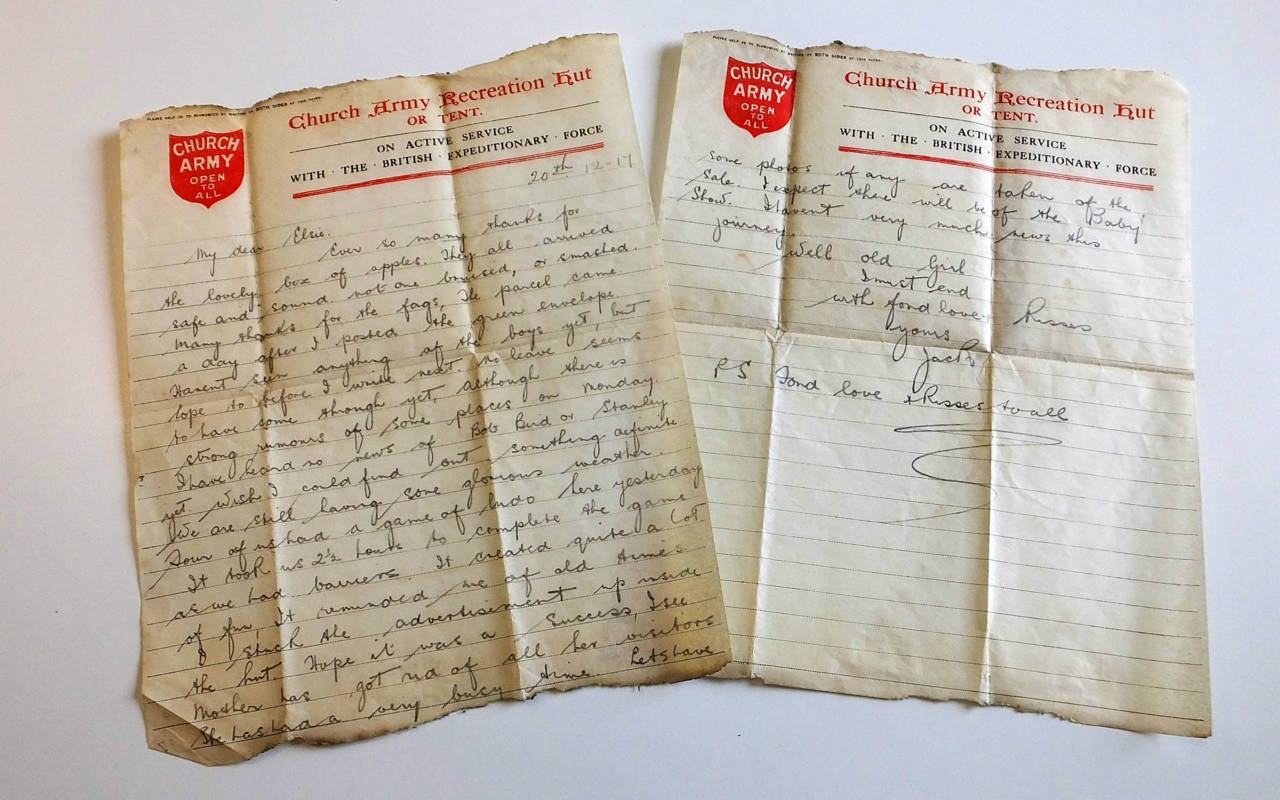 PLEASE HELP US TO ECONOMIZE BY WRITING ON BOTH SIDES OF THIS PAPER.
CHURCH
ARMY
OPEN
TO
ALL
Church Army Recreation Hut
OR TENT.
ON ACTIVE SERVICE
WITH · THE · BRITISH · EXPEDITIONARY · FORCE
20th 12-17
My dear Elsie.
Ever so many thanks for
the lovely box of apples. They all arrived
safe and sound not one bruised, or smashed.
Many thanks for the fags, The parcel came
a day after I posted the green envelope.
Havent seen anything of the boys yet, but
hope to before I write next. No leave seems
to have come through yet, although there is
strong rumours of some places on Monday.
I have heard no news of Bob Bird or Stanley
yet. Wish I could find out something definite
We are still having some glorious weather.
Four of us had a game of ludo here yesterday
It took us 2½ hours to complete the game
as we had barriers. It created quite a lot
of fun, It reminded me of old times
I stuck the advertisement up inside
the hut. Hope it was a success, I see
Mother has got rid of all her visitors
She has had a very busy time. Lets have
PLEASE HELP US TO ECONOMIZE BY WRITING ON BOTH SIDES OF THIS PAPER.
CHURCH
ARMY
OPEN
TO
ALL
Church Army Recreation Hut
OR TENT.
ON ACTIVE SERVICE
WITH · THE · BRITISH · EXPEDITIONARY · FORCE
some photos if any are taken of the
Sale. I expect there will be of the 'Baby'
Show. I havent very much news this
journey.
Well old Girl
I must end
with fond love & Kisses
yours
Jack
PS Fond love & Kisses to all